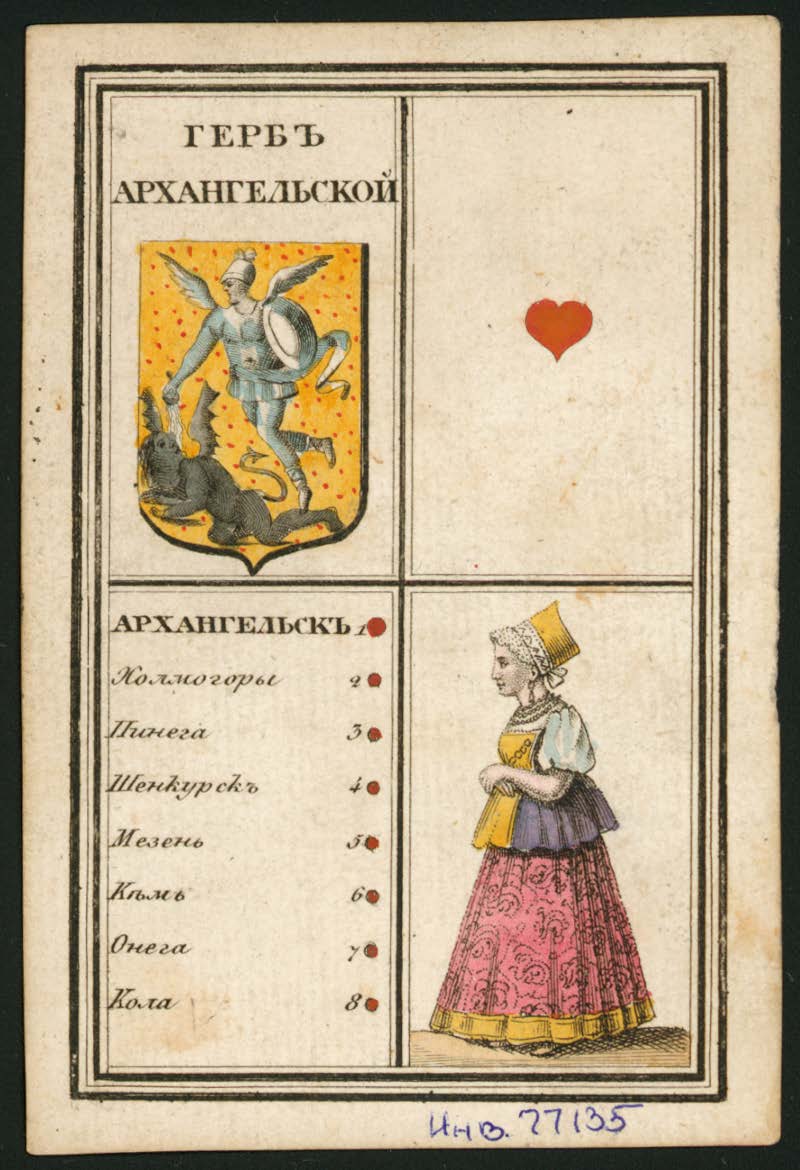 ГЕРБЪ
АРХАНГЕЛЬСКОЙ
АРХАНГЕЛЬСКЪ 1
Холмогоры 2
Пинега 3
Шенкурскъ 4
Мезень 5
Кѣмь 6
Онега 7
Кола 8
Инв. 77135